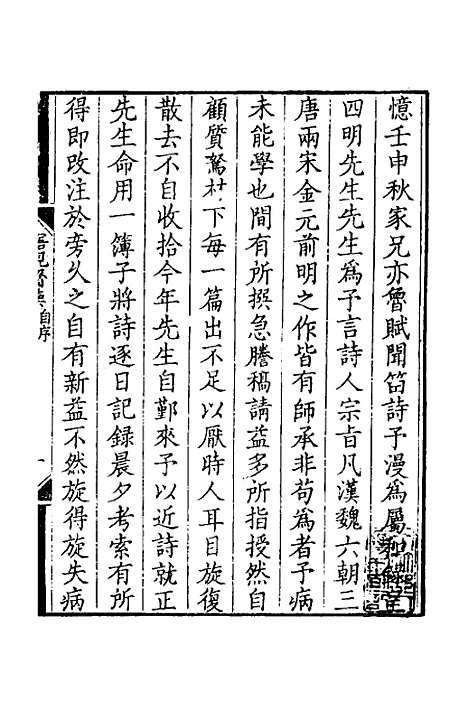 憶壬申秋家兄亦魯賦聞笛詩予漫爲屬和
四明先生先生爲予言詩人宗旨凡漢魏六朝三
唐兩宋金元前明之作皆有師承非苟爲者予病
未能學也間有所撰急謄稿請益多所指授然自
顧質駑材下每一篇出不足以厭時人耳目旋復
散去不自收拾今年先生自鄞來予以近詩就正
先生命用一簿子將詩逐日記録晨夕考索有所
得即改注於旁久之自有新益不然旋得旋失病
自序
一